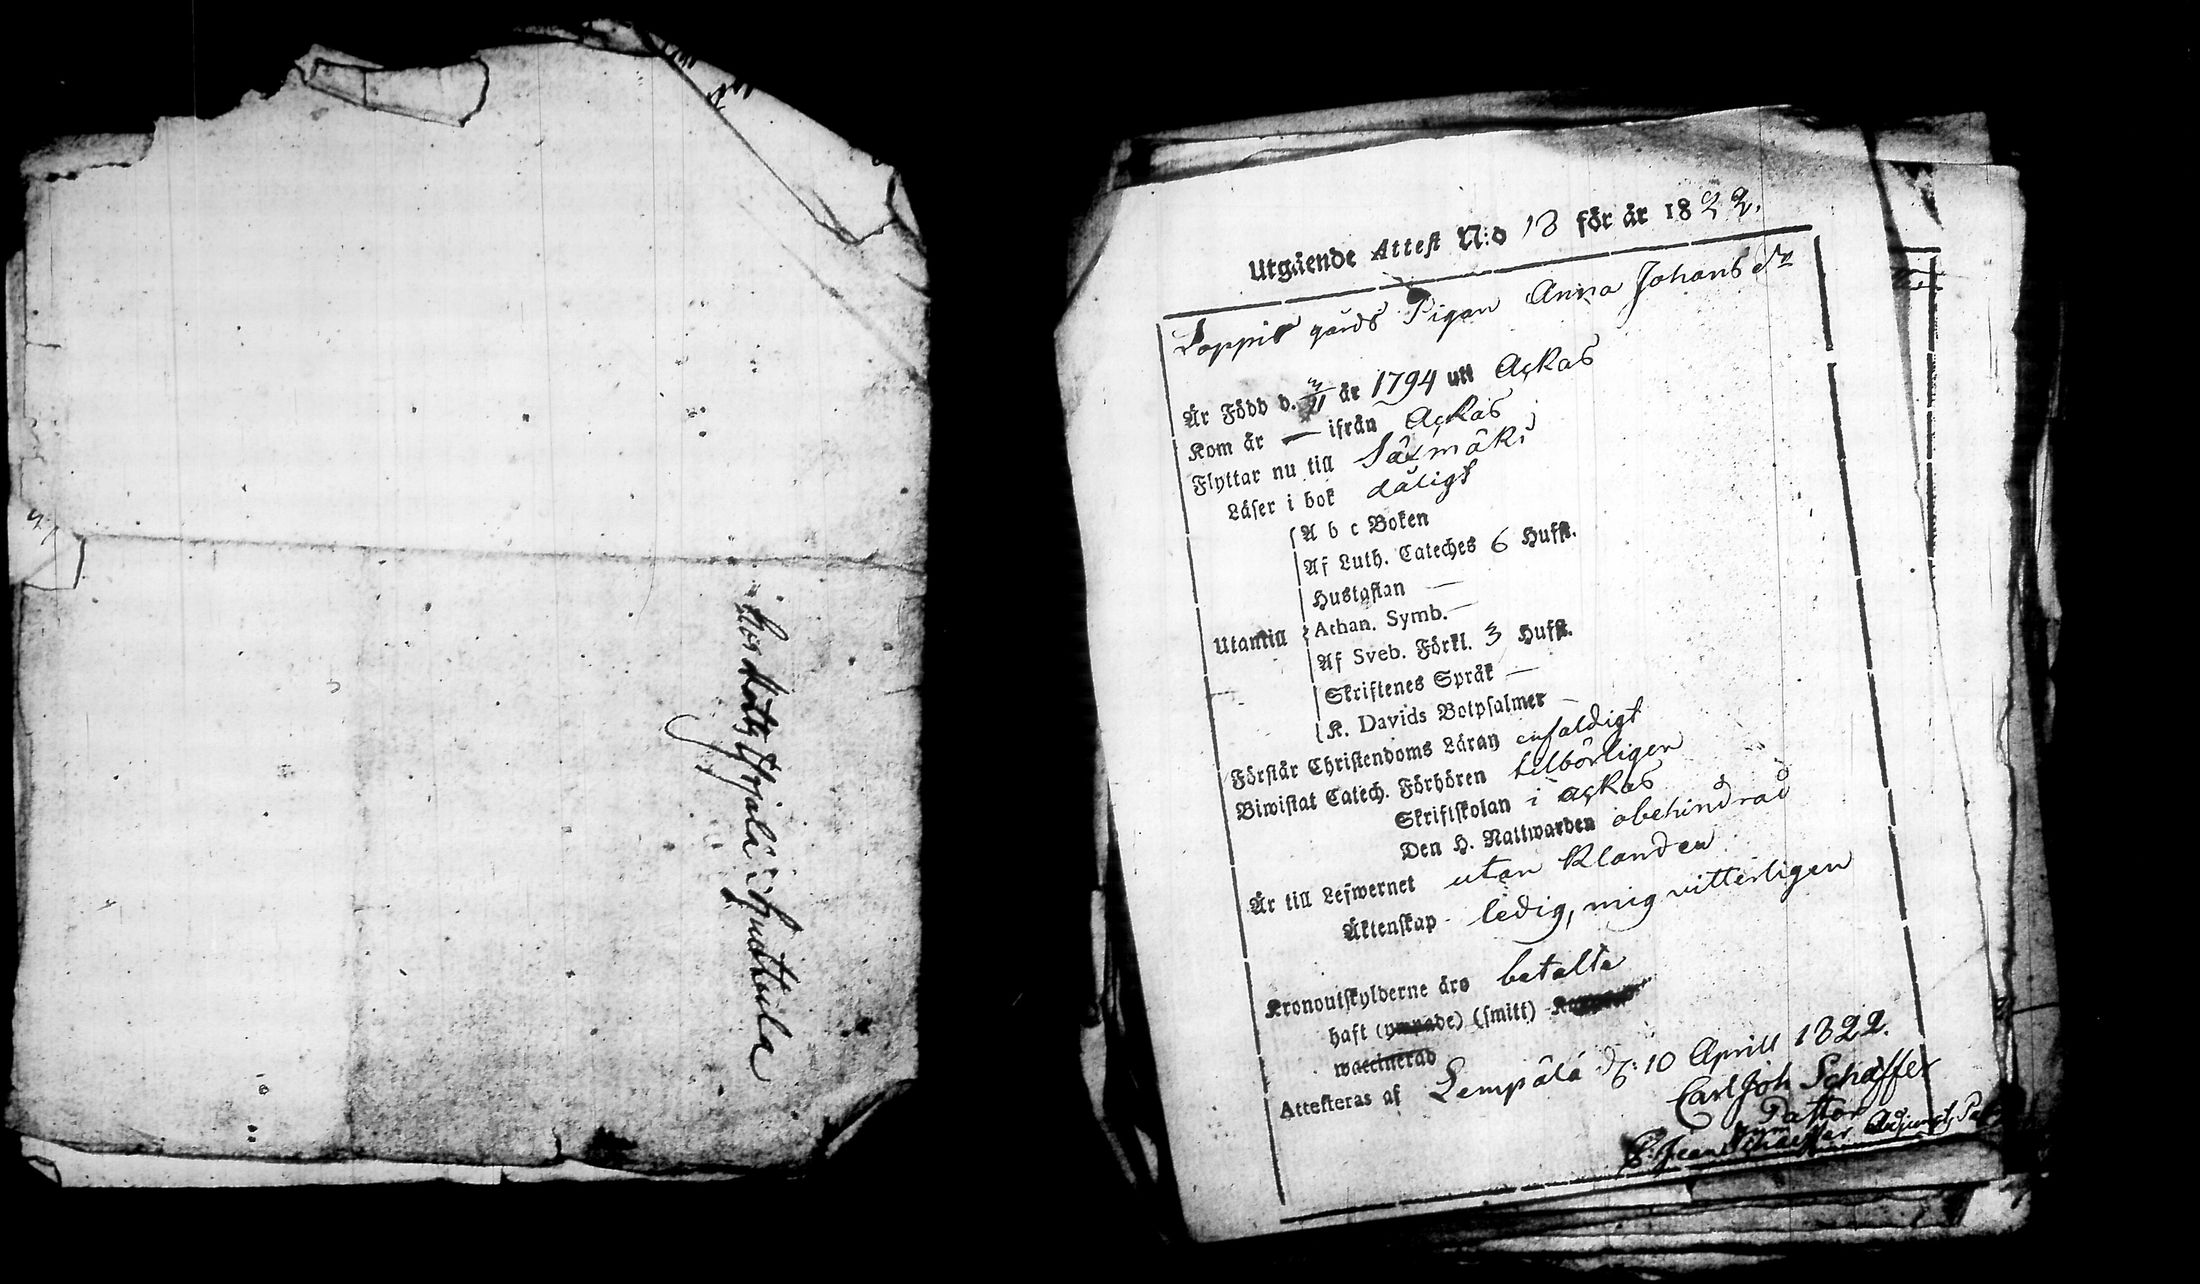 hos Matts Erjala i Huittula
Utgående Attest N:o 13 för år 1822.
Loppis gårds Pigan Anna Johans dr
Är Född d. 3/11 år 1794 uti Ackas
Kom år — ifrån Ackas
Flyttar nu till Säxmäki
Läser i bok dåligt
A b c Boken
Af Luth. Cateches 6 Hufst.
Hustaflan —
Utantill Athan. Symb. —
Af Sveb. Förkl. 3 Hufst.
Skriftenes Språk —
K. Davids Botpsalmer
Förstår Christendoms Läran enfaldigt
Biwistat Catech. Förhören tilbörligen
Skriftskolan i Ackas
Den H. Nattwarden obehindrad
Är till Lefwernet utan klander
Äktenskap ledig, mig vitterligen
Kronoutskylderne äro betalte
haft (ympade) (smitt)
waccinerad
Attesteras af Lempälä d: 10 Aprill 1822.
Carl Joh Schæffer
Pastor
Jean Schæffer Adjunct.